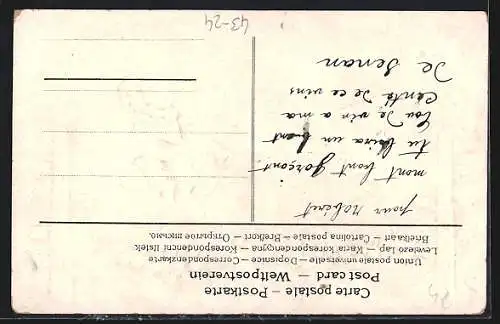 Carte postale – Postkarte
Post card — Weltpostverein
Union postale universelle – Dopisnice – Correspondenzkarte
Levelező Lap – Karta korespondencyjna – Korespondenční lístek
Briefkaart – Cartolina postale – Brefkort – Открытое письмо.
pour robert
mont bont garçont
tu boira un
bou de vin a ma
centé de ce vins
De Senan
43-24